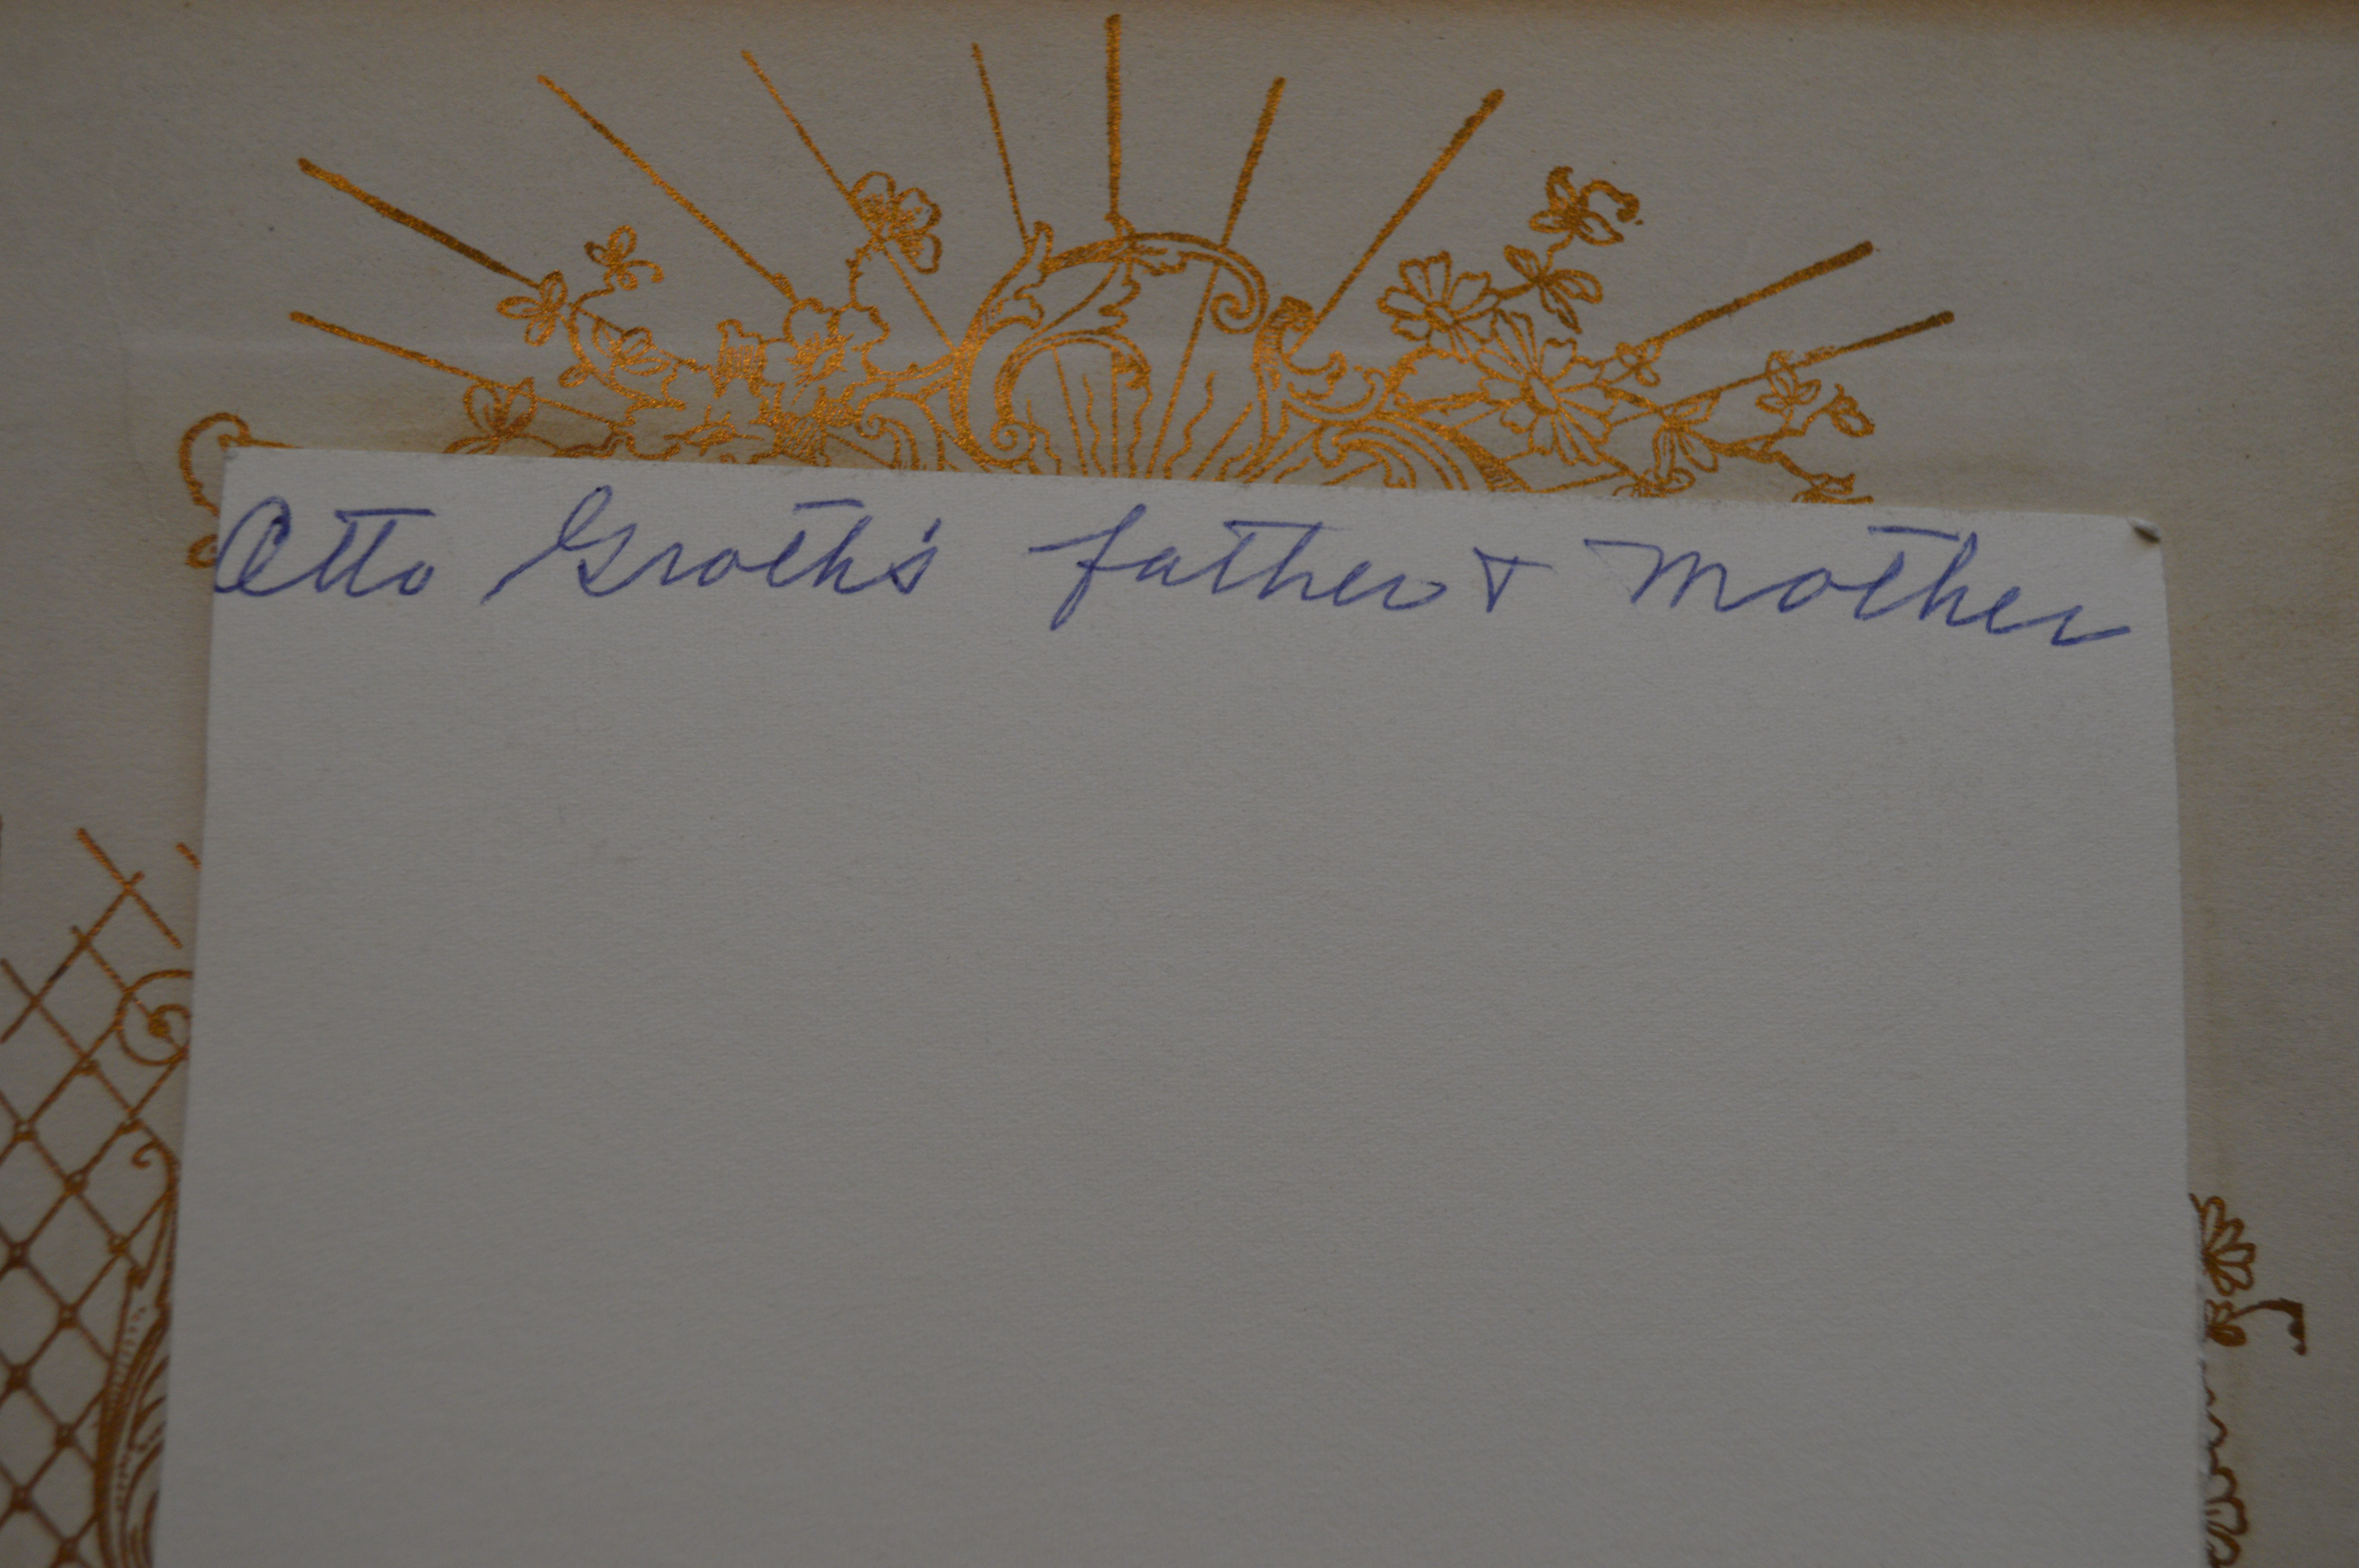 Otto Groth's father & Mother